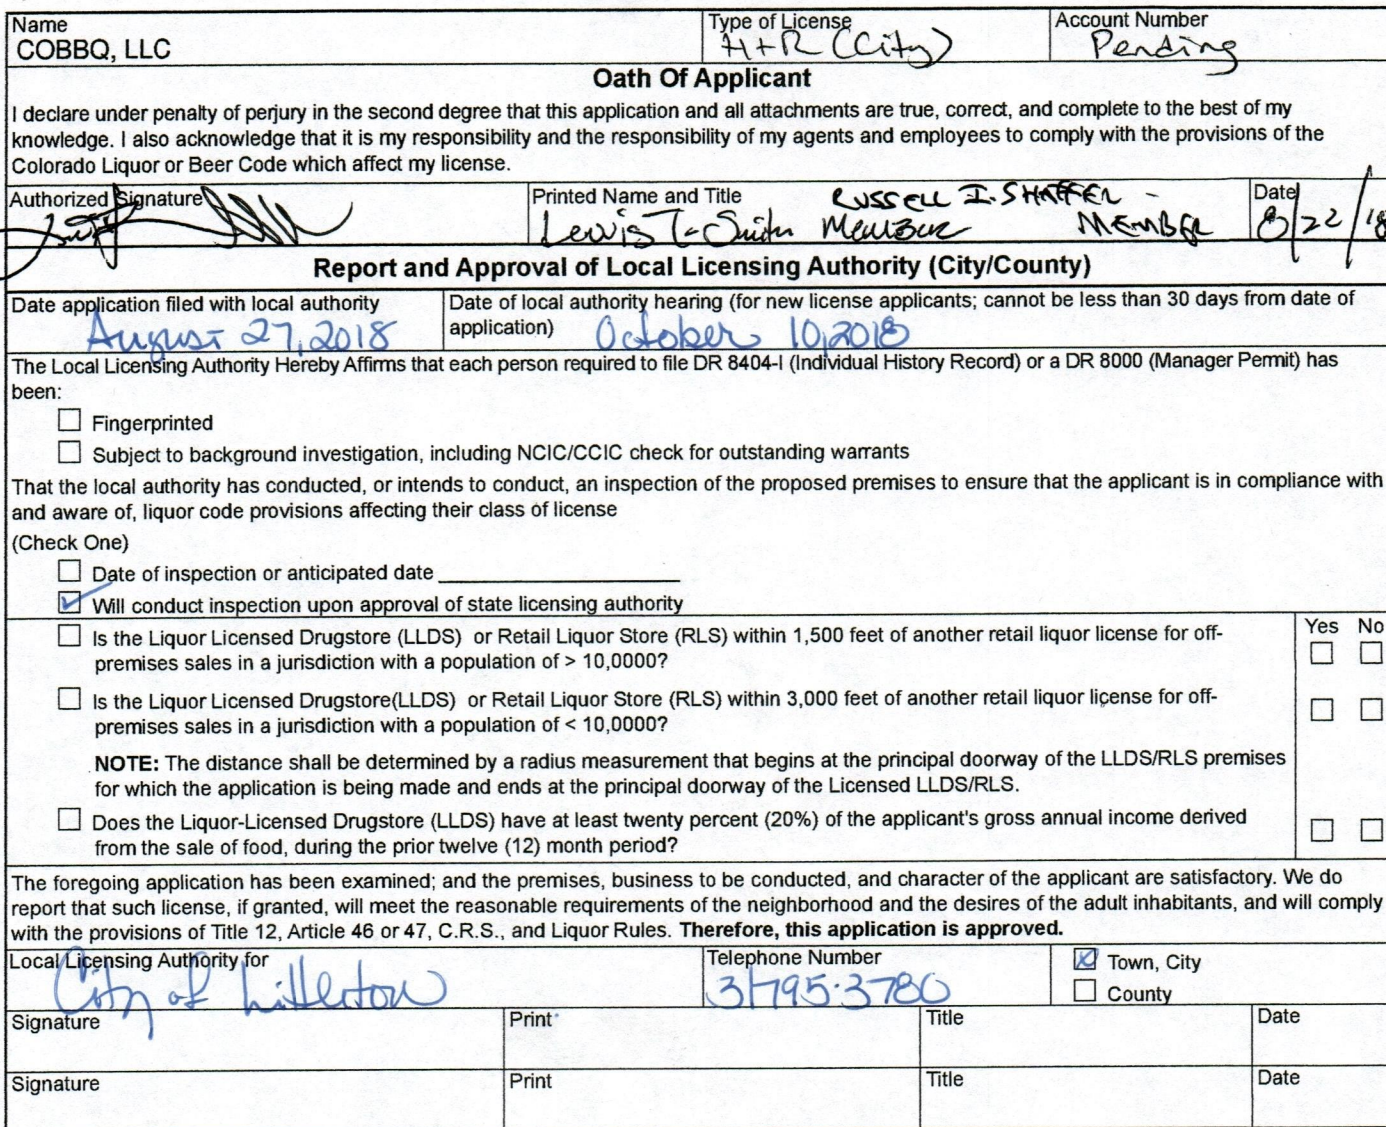 Name
COBBQ, LLC
Type of License
H+R (City)
Account Number
Pending
Oath Of Applicant
I declare under penalty of perjury in the second degree that this application and all attachments are true, correct, and complete to the best of my
knowledge. I also acknowledge that it is my responsibility and the responsibility of my agents and employees to comply with the provisions of the
Colorado Liquor or Beer Code which affect my license.
Authorized Signature
Printed Name and Title
RUSSELL I. SHAFFER -
Lewis T. Smith Member
MEMBER
Date
8/22/18
Report and Approval of Local Licensing Authority (City/County)
Date application filed with local authority
August 27, 2018
Date of local authority hearing (for new license applicants; cannot be less than 30 days from date of
application) October 10, 2018
The Local Licensing Authority Hereby Affirms that each person required to file DR 8404-I (Individual History Record) or a DR 8000 (Manager Permit) has
been:
Fingerprinted
Subject to background investigation, including NCIC/CCIC check for outstanding warrants
That the local authority has conducted, or intends to conduct, an inspection of the proposed premises to ensure that the applicant is in compliance with
and aware of, liquor code provisions affecting their class of license
(Check One)
Date of inspection or anticipated date
Will conduct inspection upon approval of state licensing authority
Yes No
Is the Liquor Licensed Drugstore (LLDS) or Retail Liquor Store (RLS) within 1,500 feet of another retail liquor license for off-
premises sales in a jurisdiction with a population of > 10,0000?
Is the Liquor Licensed Drugstore(LLDS) or Retail Liquor Store (RLS) within 3,000 feet of another retail liquor license for off-
premises sales in a jurisdiction with a population of < 10,0000?
NOTE: The distance shall be determined by a radius measurement that begins at the principal doorway of the LLDS/RLS premises
for which the application is being made and ends at the principal doorway of the Licensed LLDS/RLS.
Does the Liquor-Licensed Drugstore (LLDS) have at least twenty percent (20%) of the applicant's gross annual income derived
from the sale of food, during the prior twelve (12) month period?
The foregoing application has been examined; and the premises, business to be conducted, and character of the applicant are satisfactory. We do
report that such license, if granted, will meet the reasonable requirements of the neighborhood and the desires of the adult inhabitants, and will comply
with the provisions of Title 12, Article 46 or 47, C.R.S., and Liquor Rules. Therefore, this application is approved.
Local Licensing Authority for
City of Littleton
Telephone Number
3/795.3780
Town, City
County
Signature
Print
Title
Date
Signature
Print
Title
Date